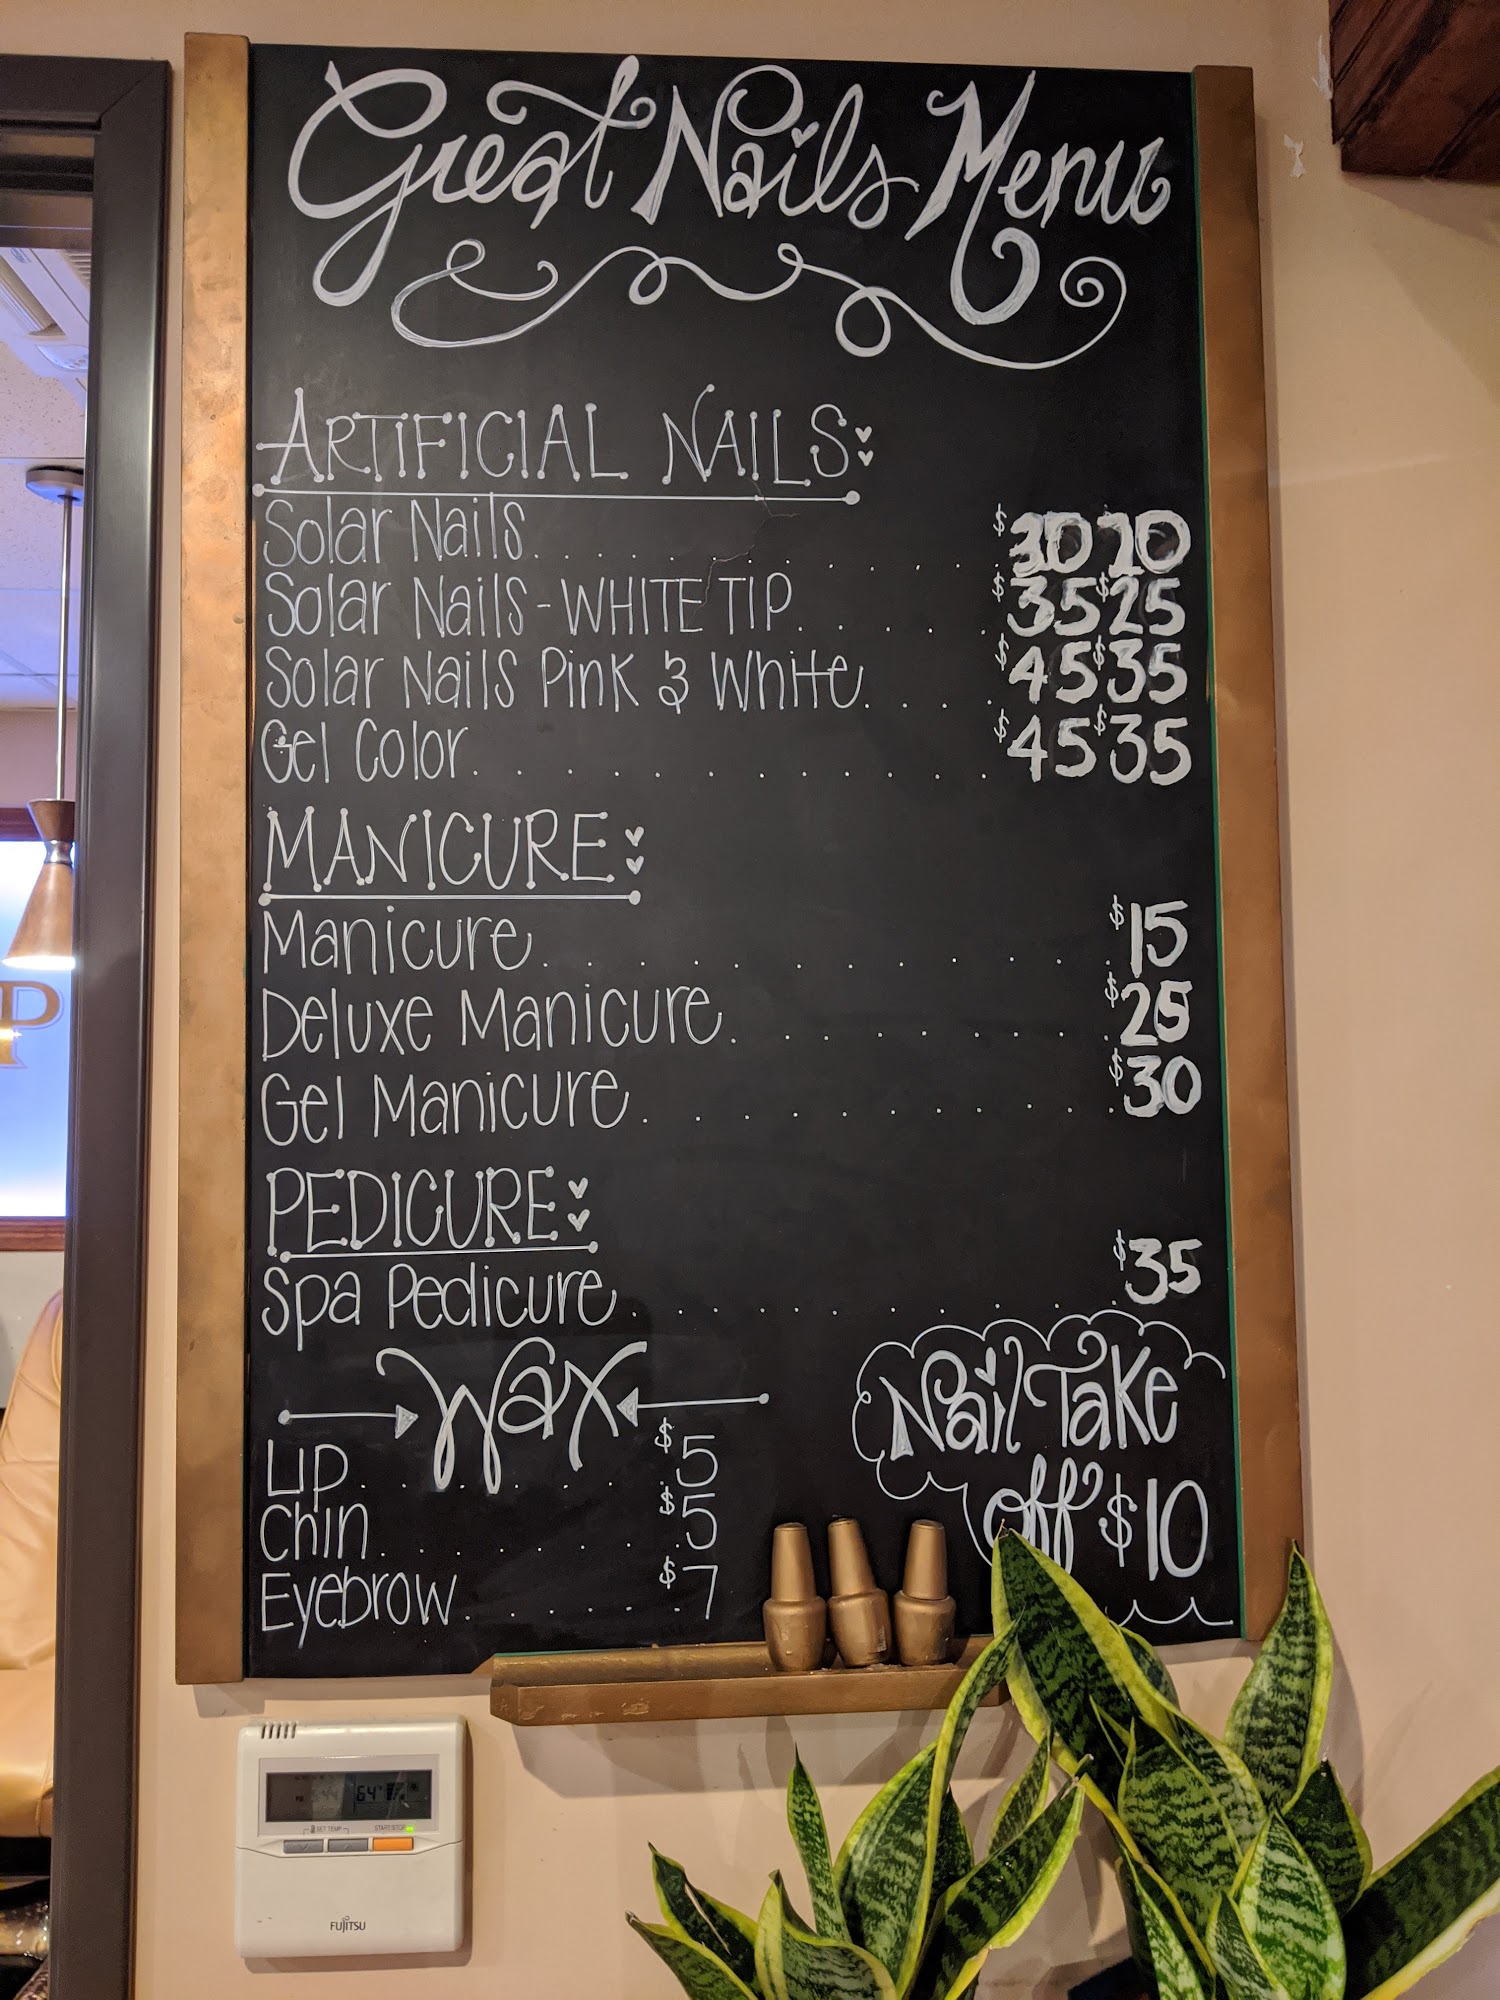 Great Nails Menu
ARTIFICIAL NAILS:
Solar Nails. . . . . . . . . . . . . $30 $20
Solar Nails-WHITE TIP. . . . . . $35 $25
Solar Nails Pink & White. . . . $45 $35
Gel Color. . . . . . . . . . . . . $45 $35
MANICURE:
Manicure. . . . . . . . . . . . . $15
Deluxe Manicure. . . . . . . . . $25
Gel Manicure. . . . . . . . . . . . $30
PEDICURE:
Spa Pedicure. . . . . . . . . . . . $35
Wax
Lip. . . . . . . . . $5
Chin. . . . . . . . . $5
Eyebrow. . . . . . . $7
Nail Take
off $10
64°
SET TEMP.
START/STOP
FUJITSU
P